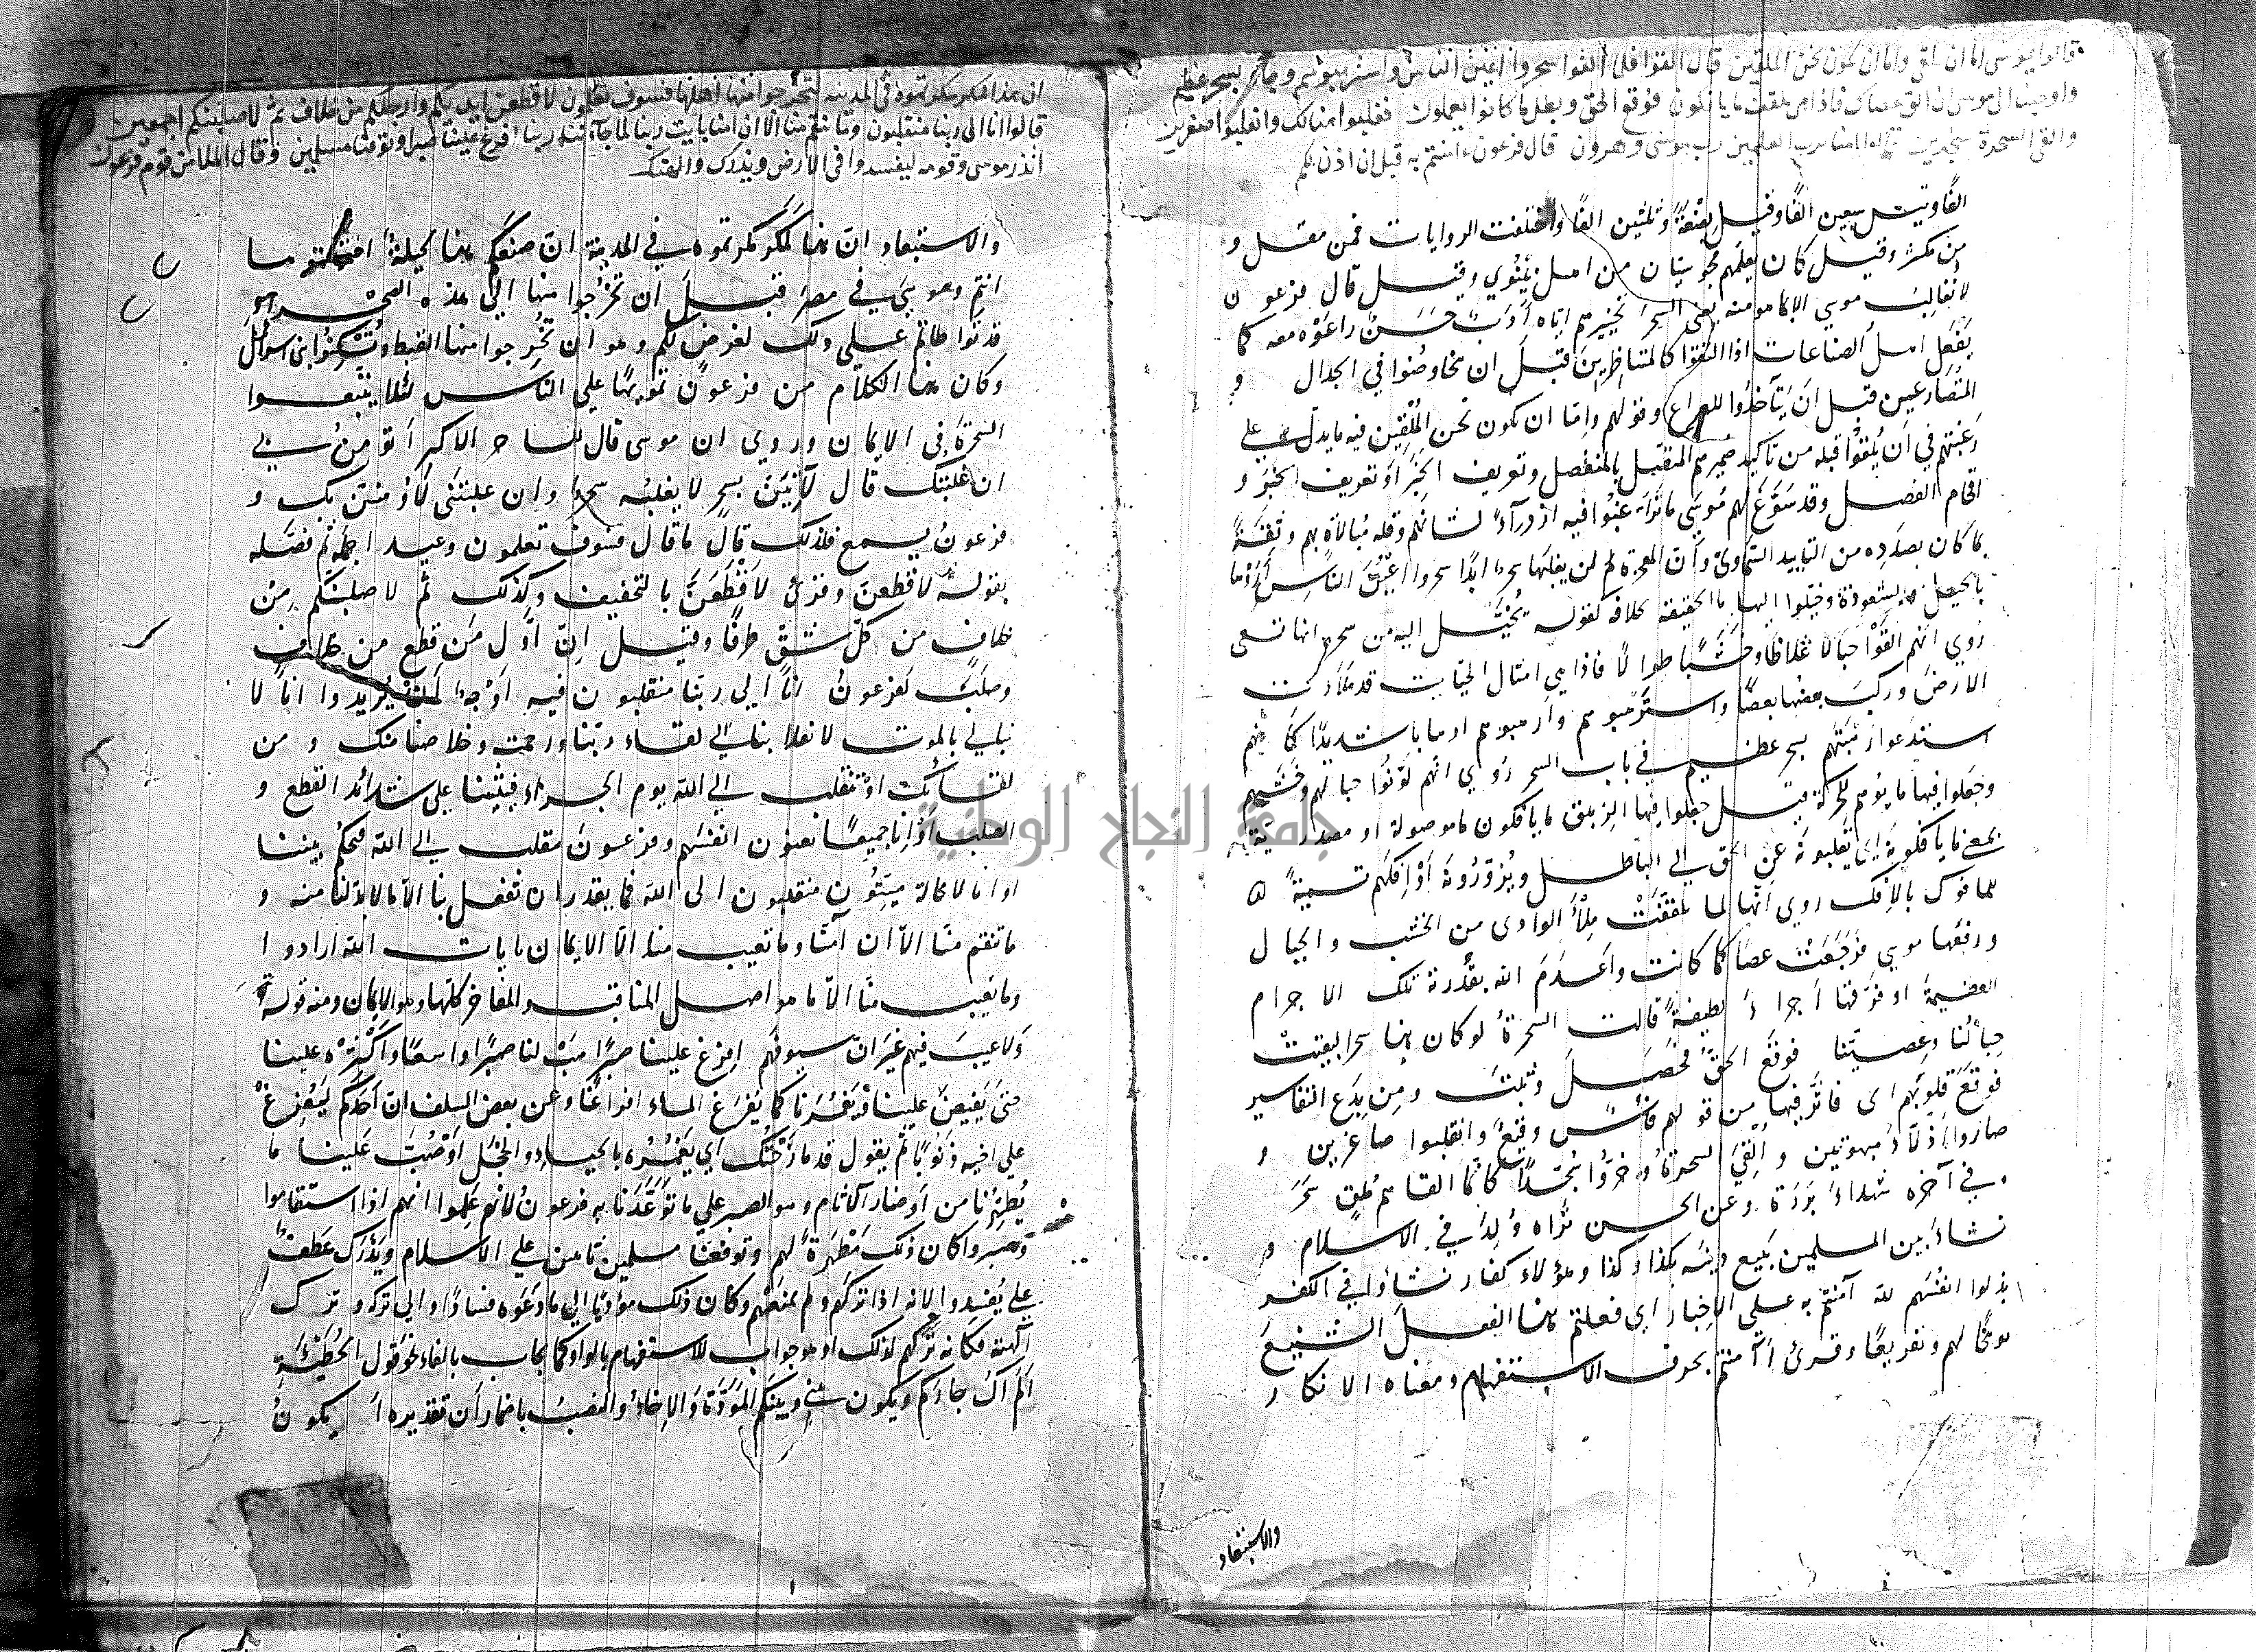 قالوا يموسى اما ان تلقى واما ان نكون نحن الملقين قال القوا فلما القوا سحروا اعين الناس واسترهبوهم وجاءو بسحر عظيم
واوحينا الى موسى ان الق عصاك فاذا هي تلقف ما يافكون فوقع الحق وبطل ما كانوا يعملون فغلبوا هنالك وانقلبوا صغرين
والقى السحرة سجدين قالوا امنا برب العلمين رب موسى وهرون قال فرعون ءامنتم به قبل ان اذن لكم
الفًا وقيل سبعين الفًا وقيل بضعةً وثلثين الفًا واختلفت الروايات فمن مقل و
من مكثر وقيل كان يعلمهم مجوسيان من اهل نينوي وقيل قال فرعون
لا نغالب موسي الا بما هو منه يعني السحر تخييرهم اياه أدبٌ حسنٌ راعوه معه كما
يفعل اهل الصناعات اذا التقوا كالمتناظرين قبل ان يتخاوضوا في الجدال و
المتصارعين قبل ان يتآخذوا للصراع وقولهم واما ان نكون نحن الملقين فيه ما يدل على
رغبتهم في أن يلقوا قبله من تاكيد ضميرهم المتصل بالمنفصل وتعريف الخبر او تعريف الخبر و
اقحام الفصل وقد سوغ لهم موسي ما تراغبوا فيه ازدرآءً لشانهم وقلة مبالاة بهم وثقةً
بما كان بصدده من التاييد السماوي وأن المعجزة لن يغلبها سحر ابدًا سحروا اعين الناس أروها
بالحيل والشعوذة وخيلوا اليها ما الحقيقة بخلافه كقوله يخيل اليه من سحرهم انها تسعى
روي انهم القوا حبالا غلاظا وخشبا طوالا فاذا هي امثال الحيات قد ملأت
الارض وركب بعضها بعضًا واسترهبوهم وارهبوهم ارهابا شديدًا كانهم
استدعوا رهبتهم بسحر عظيم في باب السحر روي انهم لونوا حبالهم وخشبهم
وجعلوا فيها ما يوهم الحركة قيل جعلوا فيها الزيبق ما يافكون ما موصولة او مصدرية
بمعنى ما يافكونه اي يقلبونه عن الحق الي الباطل ويزورونه أو إفكهم تسمية
للمافوك بالافك روي أنها لما تلقفت ملأ الوادى من الخشب والحبال
ورفعها موسي فرجعت عصًا كما كانت واعدم الله بقدرته تلك الاجرام
العظيمة او فرقها اجراءً لطيفةً قالت السحرة لو كان هذا سحرا لبقيت
حبالنا وعصيتنا فوقع الحق فحصل وثبت ومن بدع التفاسير
فوقع قلوبهم اى فأثر فيها من قولهم فأس وقيع وانقلبوا صاغرين و
صاروا أذلاء مبهوتين والقى السحرة وخروا سجّدًا كانما القاهم ملق سحر
وفي آخره شهداء بررة وعن الحسن تراه ولد في الاسلام و
نشأ بين المسلمين يبيع دينه بكذا وكذا وهؤلاء كفار نشأوا في الكفر
بذلوا انفسهم لله آمنتم به على الإخبار اي فعلتم هذا الفعل الشنيع
توبيخًا لهم وتقريعًا وقرئ أآمنتم بحرف الاستفهام ومعناه الانكار
والاستبعاد
ان هذا لمكر مكرتموه في المدينة لتخرجوا منها اهلها فسوف تعلمون لاقطعن ايديكم وارجلكم من خلاف ثم لاصلبنكم اجمعين
قالوا انا الى ربنا منقلبون وما تنقم منا الا ان امنا بايت ربنا لما جآءتنا ربنا افرغ علينا صبرا وتوفنا مسلمين وقال الملا من قوم فرعون
اتذر موسى وقومه ليفسدوا في الارض ويذرك والهتك
والاستبعاد ان هذا لمكر مكرتموه في المدينة ان صنعكم هذا لحيلة احتلتموها
انتم وموسي في مصر قبل ان تخرجوا منها الي هذه الصحرآء
قد تواطاتم علي ذلك لغرض لكم وهو ان تخرجوا منها القبط وتسكنوا بني اسرائيل
وكان هذا الكلام من فرعون تمويهًا علي الناس لئلا يتبعوا
السحرة في الايمان وروي ان موسى قال للساحر الاكبر أتؤمن بي
ان غلبتك قال لآتين بسحر لا يغلبه سحر وان غلبتنى لأومنن بك و
فرعون يسمع فلذلك قال ما قال فسوف تعلمون وعيد اجمله ثم فصله
بقوله لاقطعن وقرئ لاقطعن بالتخفيف وكذلك ثم لاصلبنكم من
خلاف من كل شق طرفًا وقيل إن أول من قطع من خلاف
وصلب لفرعون انا الي ربنا منقلبون فيه أوجه أن يريدوا انا لا
نبالي بالموت لانقلابنا الي لقاء ربنا ورحمته وخلاصنا منك ومن
لقائك او ننقلب الي الله يوم الجزاء فيثيبنا علي شدائد القطع و
الصلب أو إنا جميعًا يعنون انفسهم وفرعون ننقلب الي الله فيحكم بيننا
او انا لا محالة ميتون منقلبون الى الله فما يقدر ان تفعل بنا الا ما لابد لنا منه و
ما تنقم منا الا ان آمنا وما تعيب منا الا الايمان بايات الله ارادوا
وما تعيب منا الا ما هو اصل المناقب والمفاخر كلها وهو الايمان ومنه قوله
ولا عيب فيهم غير ان سيوفهم افرغ علينا صبرًا هب لنا صبرًا واسعًا وأكثره علينا
حتى يفيض علينا ويغمرنا كما يفرغ الماء افراغًا وعن بعض السلف ان أحدكم ليفرغ
علي اخيه ذنوبًا ثم يقول قد مازحتك اي يغمره بالحياء والخجل أو صب علينا ما
يطهرنا من أوضار الآثام وهو الصبر علي ما توعدنا به فرعون لانهم علموا انهم اذا استقاموا
وصبروا كان ذلك مطهرةً لهم وتوفنا مسلمين ثابتين علي الاسلام ويذرك عطف
علي يفسدوا لانه اذا تركهم ولم يمنعهم وكان ذلك مؤديًا الي ما دعوه فسادًا والي تركه وترك
آلهته فكانه تركهم لذلك او هو جواب للاستفهام بالواو كما يجاب بالفاء نحو قول الحطيئة
الم اك جاركم ويكون بيني وبينكم المودة والإخاء والنصب باضمار أن تقديره أيكون